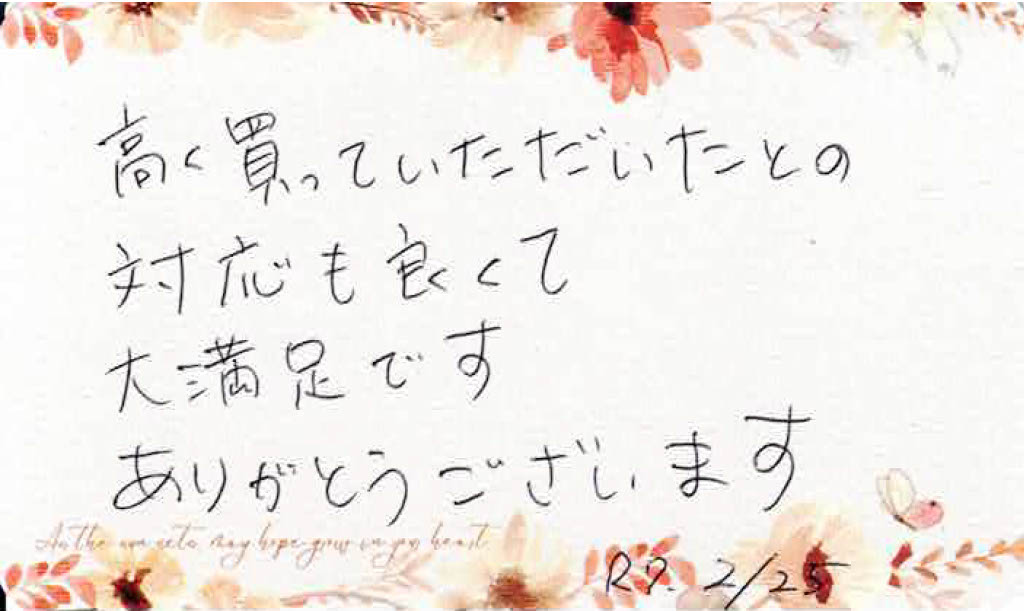 高く買っていただいたとの
対応も良くて
大満足です
ありがとうございます
may hope grow in you heart
R7. 2/25